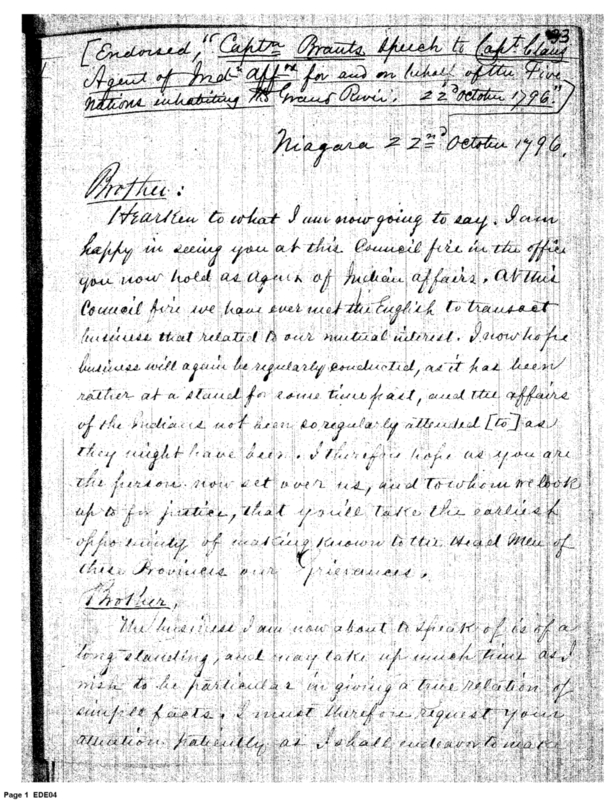 93
[Endorsed, "Captn Brants speech to Capt. Claus
Agent of Indn Affrs for and on behalf of the Five
Nations inhabiting the Grand River. 22d October 1796."]
Niagara 22nd October 1796.
Brother:
Hearken to what I am now going to say. I am
happy in seeing you at this Council fire in the office
you now hold as Agent of Indian affairs. At this
Council fire we have ever met the English to transact
business that related to our mutual interest. I now hope
business will again be regularly conducted, as it has been
rather at a stand for some time past, and the affairs
of the Indians not been so regularly attended [to] as
they might have been. I therefore hope as you are
the person now set over us, and to whom we look
up to for justice, that you'll take the earliest
opportunity of making known to the Head Men of
these Provinces our Grievances.
Brother,
The business I am now about to speak of is of a
long standing, and may take up much time as I
wish to be particular in giving a true relation of
simple facts. I must therefore request your
attention patiently as I shall endeavor to make
Page 1 EDE04